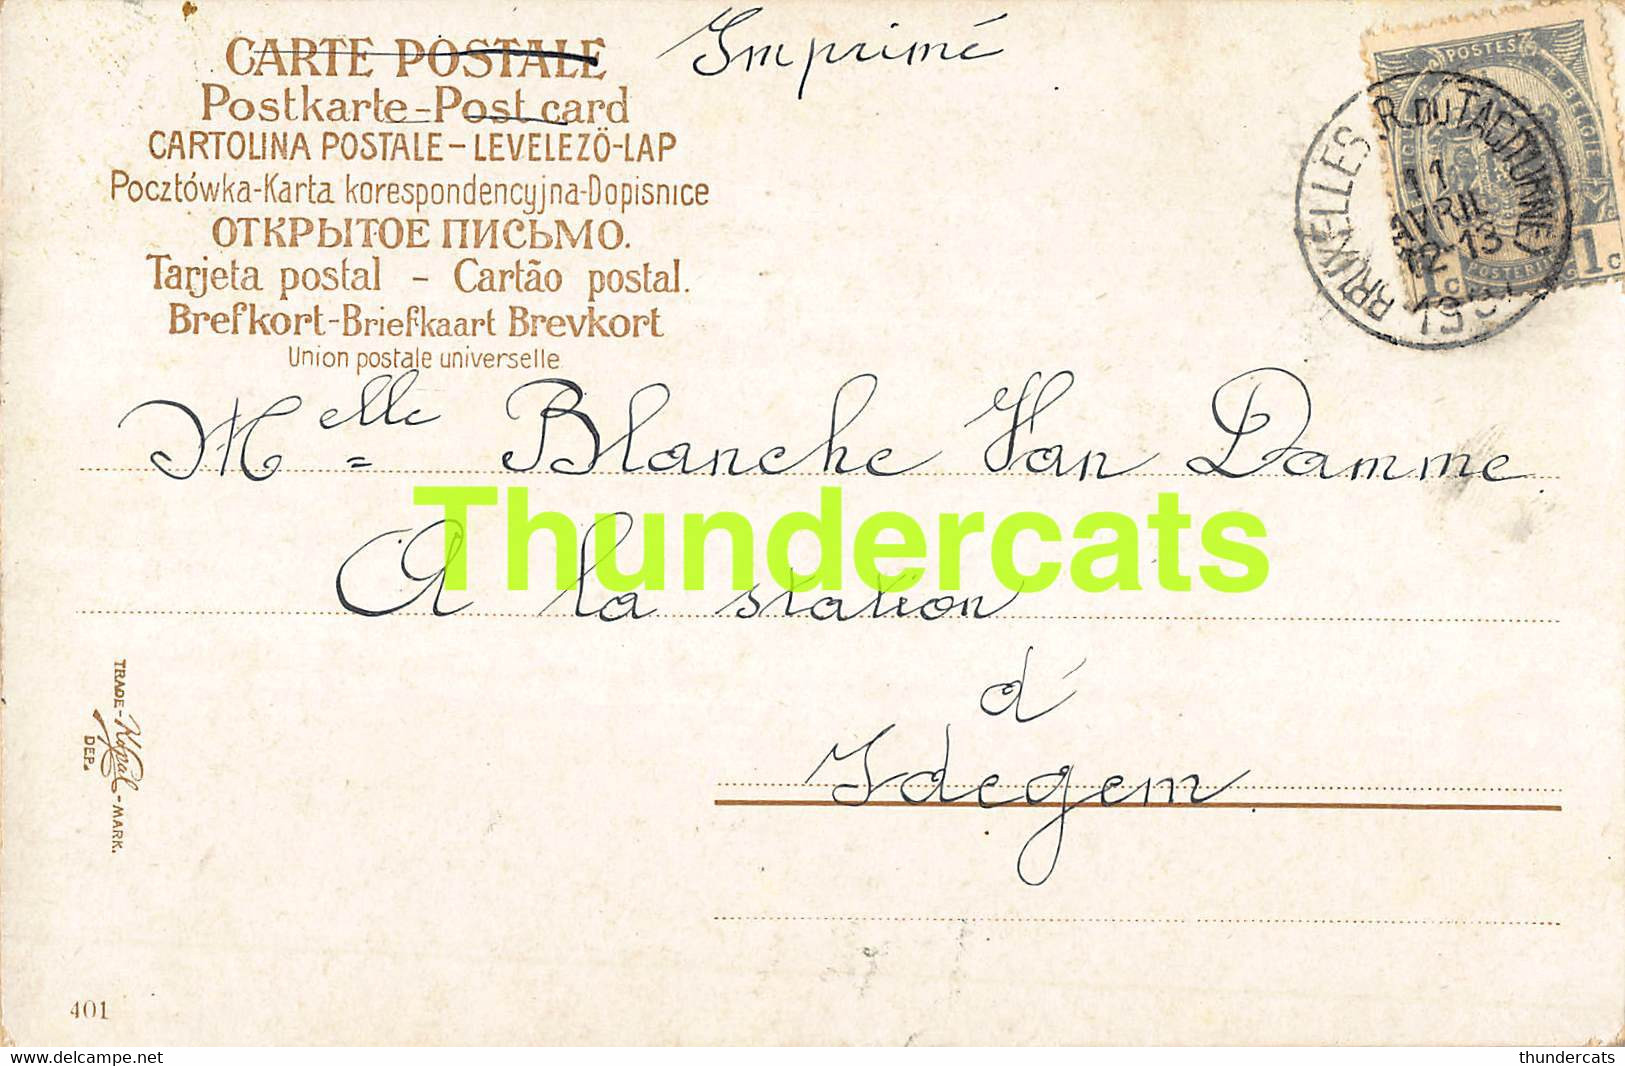 CARTE POSTALE
Imprimé
Postkarte-Post card
CARTOLINA POSTALE-LEVELEZÖ-LAP
Pocztówka-Karta korespondencyjna-Dopisnice
ОТКРЫТОЕ ПИСЬМО.
Tarjeta postal - Cartão postal.
Brefkort-Briefkaart Brevkort
Union postale universelle
POSTES
BRUXELLES R. DU TACITURNE
11
AVRIL
12-13
1c
1c
Melle = Blanche Van Damme.
A la station
d'
Idegem
TRADE-Kopal-MARK.
DEP.
401
Thundercats
delcampe.net
thundercats